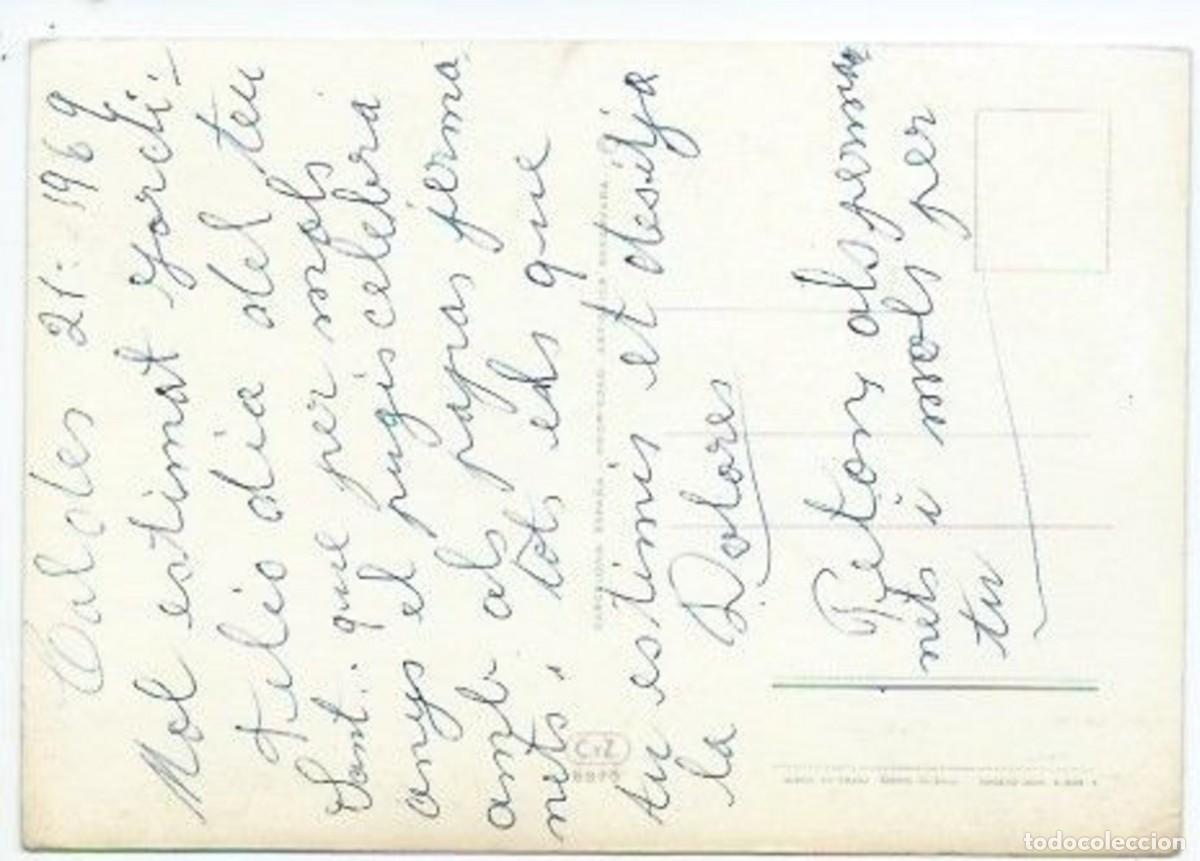 Caldes 21-1969
Mol estimat Jordi:
Felis dia del teu
Sant. que per mols
anys el pugis celebra
amb els papas germa-
nets, i tots els que
tu estimis et desitja
la Dolores
Petons als germa
nets i mols per
tu
CyZ
todocoleccion